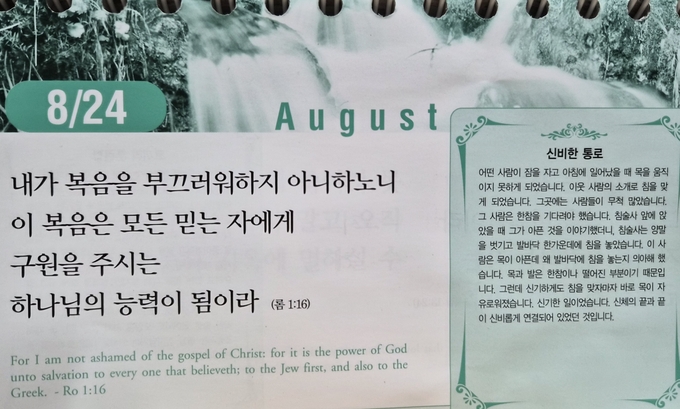 8/24
August
내가 복음을 부끄러워하지 아니하노니
이 복음은 모든 믿는 자에게
구원을 주시는
하나님의 능력이 됨이라 (롬 1:16)
For I am not ashamed of the gospel of Christ: for it is the power of God
unto salvation to every one that believeth; to the Jew first, and also to the
Greek. - Ro 1:16
신비한 통로
어떤 사람이 잠을 자고 아침에 일어났을 때 목을 움직
이지 못하게 되었습니다. 이웃 사람의 소개로 침을 맞
게 되었습니다. 그곳에는 사람들이 무척 많았습니다.
그 사람은 한참을 기다려야 했습니다. 침술사 앞에 앉
았을 때 그가 아픈 것을 이야기했더니, 침술사는 양말
을 벗기고 발바닥 한가운데에 침을 놓았습니다. 이 사
람은 목이 아픈데 왜 발바닥에 침을 놓는지 의아해 했
습니다. 목과 발은 한참이나 떨어진 부분이기 때문입
니다. 그런데 신기하게도 침을 맞자마자 바로 목이 자
유로워졌습니다. 신기한 일이었습니다. 신체의 끝과 끝
이 신비롭게 연결되어 있었던 것입니다.